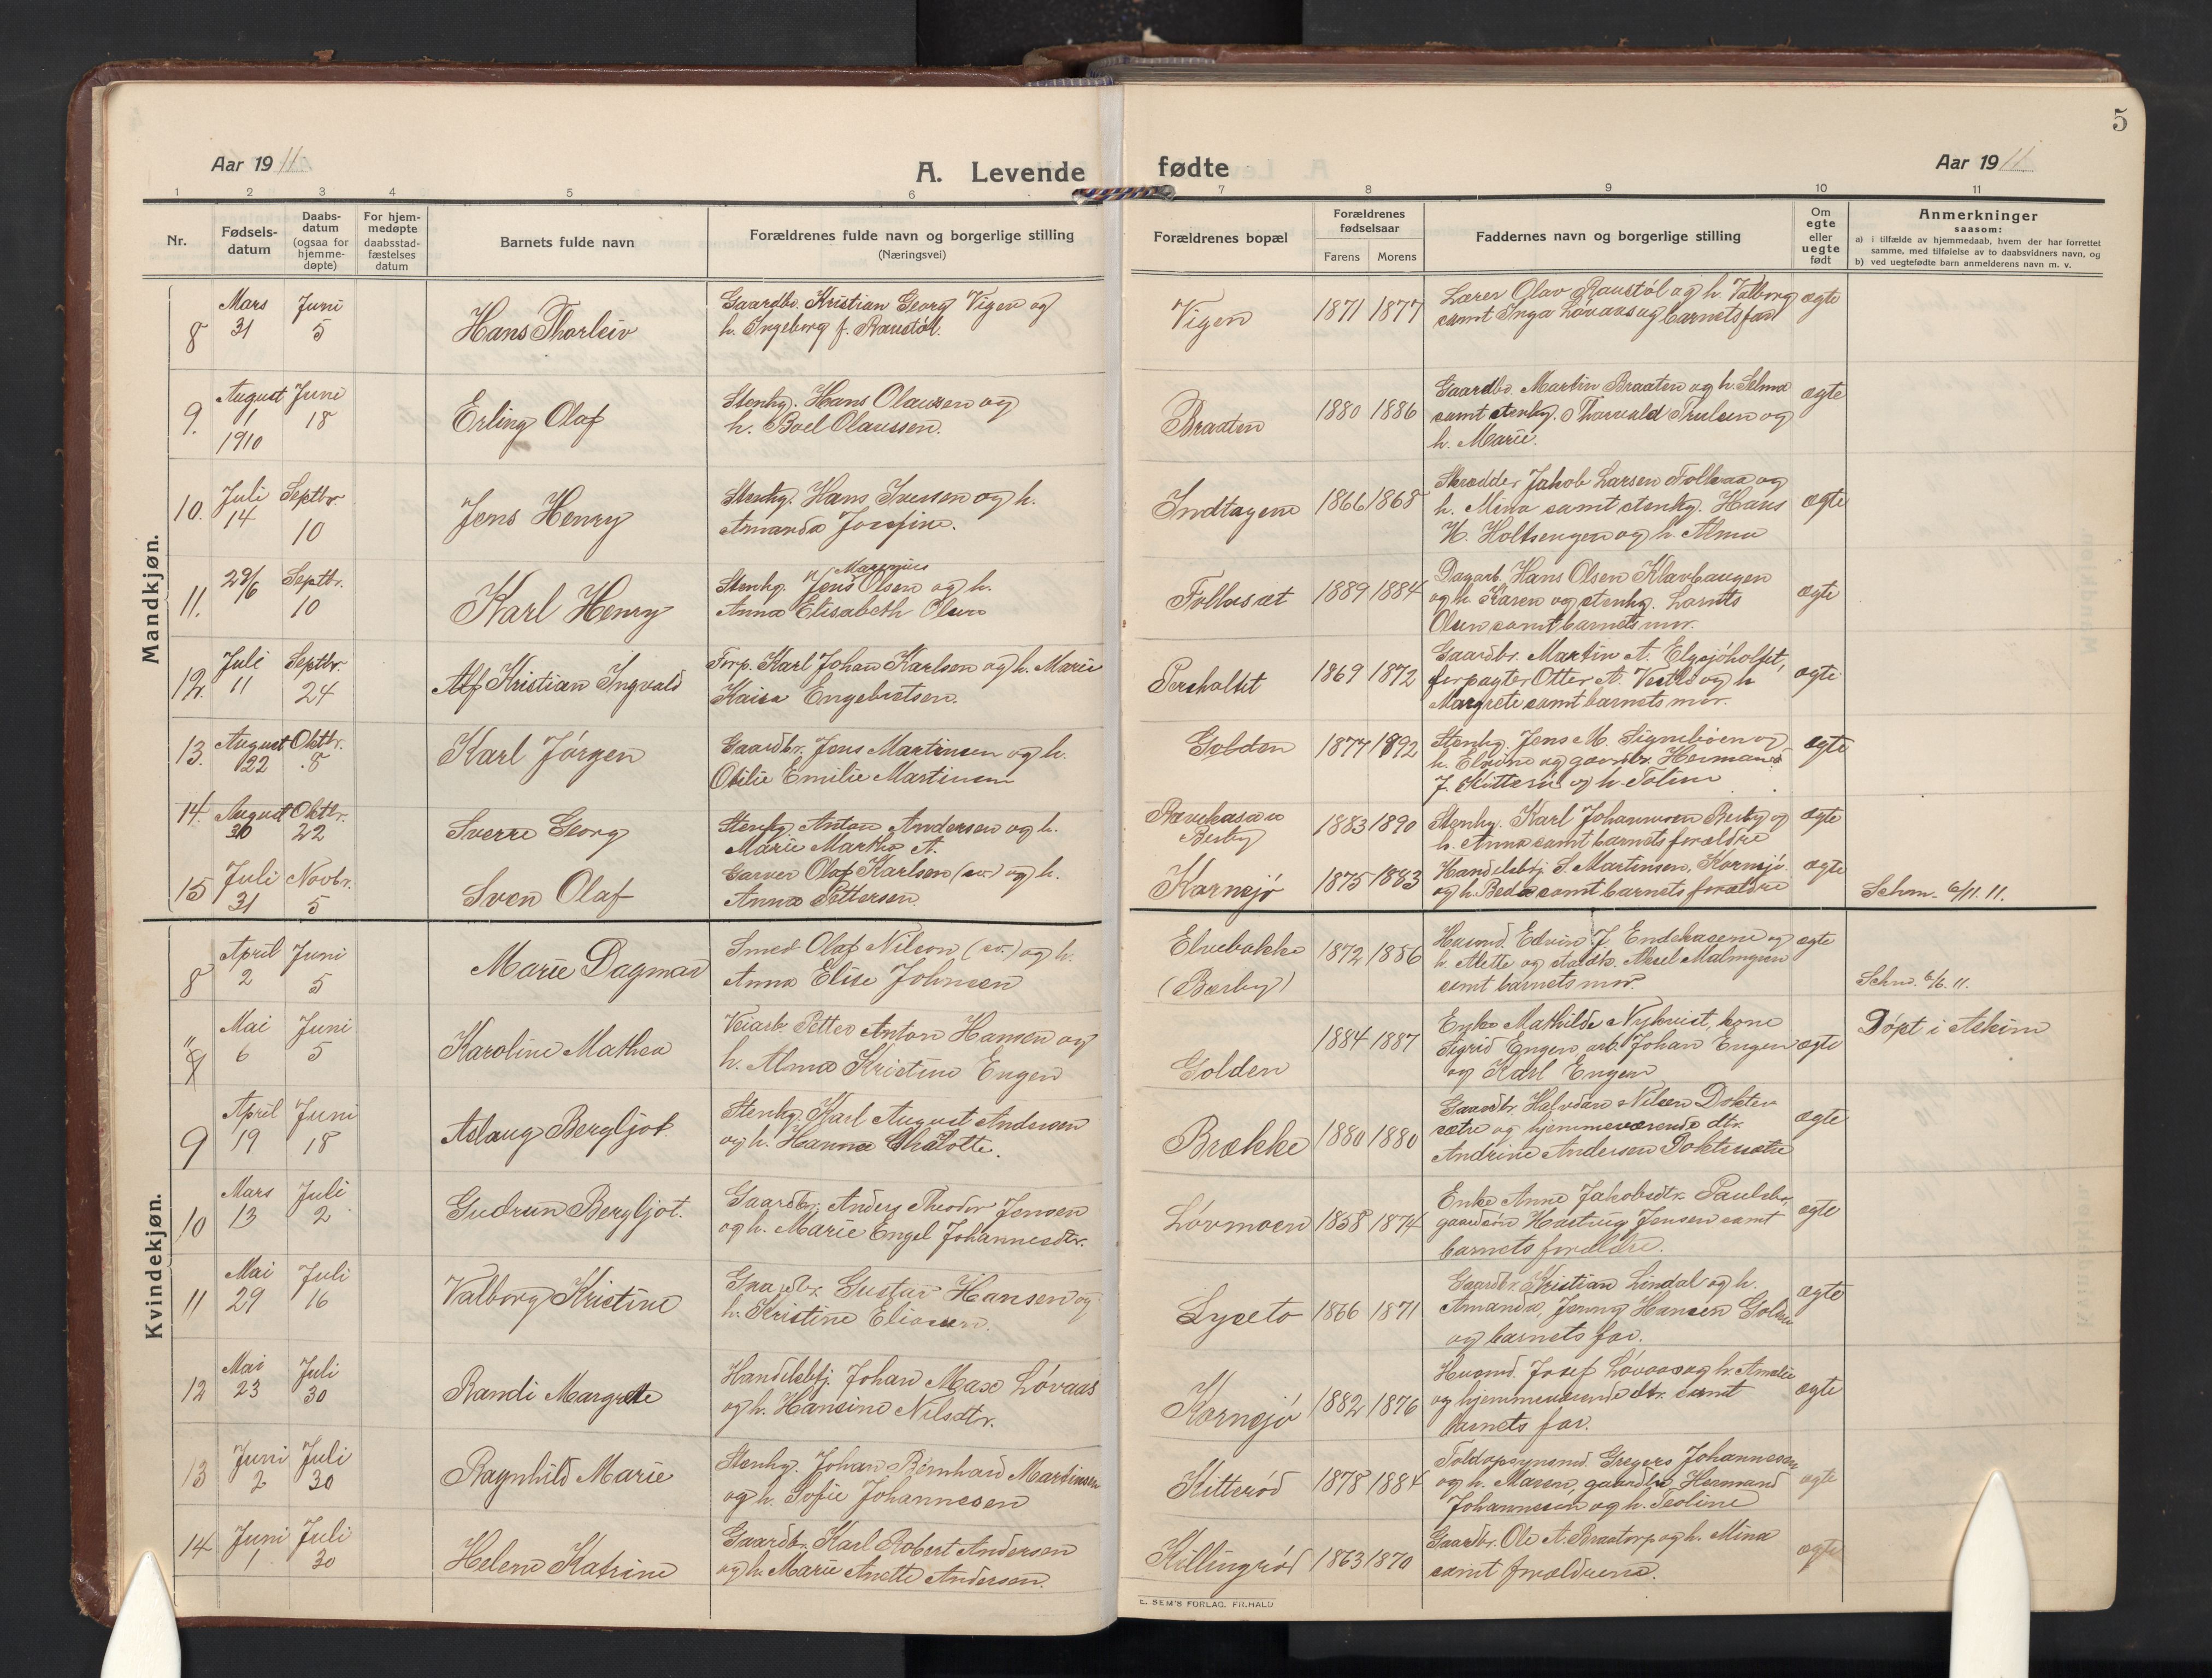 5
Aar 1911
A. Levende fødte
Aar 1911
1 2 3 4 5 6 7 8 9 10 11
Nr.
Fødsels-
datum
Daabs-
datum
(ogsaa for
hjemme-
døpte)
For hjem-
medøpte
daabsstad-
fæstelses
datum
Barnets fulde navn
Forældrenes fulde navn og borgerlige stilling
(Næringsvei)
Forældrenes bopæl
Forældrenes
fødselsaar
Farens Morens
Faddernes navn og borgerlige stilling
Om
egte
eller
uegte
født
Anmerkninger
saasom:
a) i tilfælde av hjemmedaab, hvem der har forrettet
samme, med tilføielse av to daabsvidners navn, og
b) ved uegtefødte barn anmelderens navn m. v.
Mandkjøn.
8 Mars 31 Juni 5
Hans Thorleiv
Gaardbr. Kristian Georg Vigen og
h. Ingeborg f. Raustøl.
Vigen 1871 1877
Lærer Olav Raustøl og h. Valborg
samt Inga Løvaas og barnets far
egte
9. August 1 1910 Juni 18
Erling Olaf
Stenhg. Hans Olaussen og
h. Boel Olaussen.
Braaten 1880 1886
Gaardbr. Martin Braaten og h. Selma
samt stenhg. Thorvald Trulsen og
h. Marie.
egte
10. Juli 14 Septbr. 10
Jens Henry
Stenhg. Hans Iversen og h.
Amanda Josefine.
Indtagene 1866 1868
Skrædder Jakob Larsen Folkaa og
h. Mina samt stenhg. Hans
H. Holtsengen og h. Alma
egte
11. 29/6 Septbr. 10
Karl Henry
Marenius
Stenhg. Jens Olsen og h.
Anna Elisabeth Olsen
1889 1884
Dagarb. Hans Olsen Klavhaugen
og h. Karen og stenhg. Laritts
Olsen samt barnets mor.
egte
12. Juli 11 Septbr. 24
Alf Kristian Ingvald
Forp. Karl Johan Karlsen og h. Marie
Kaisa Engebretsen.
Persholtet 1869 1872
Gaardbr. Martin A. Elgsjøholtet,
forpagter Otter A. og h
Margrete samt barnets mor.
egte
13. August 22 Oktbr. 8
Karl Jørgen
Gaardbr. Jens Martinsen og h.
Otilie Emilie Martinsen
Golden 1877 1892
Stenhg. Jens M. Signebøen og
h. Elvine og gaardbr. Herman
J. og h. Toline
egte
14. August 30 Oktbr. 22
Sverre Georg
Stenhg. Anton Andersen og h.
Marie Martha A.
Berby 1883 1890
Stenhg. Karl Johannesen Berby og
h. Anna samt barnets forældre
egte
15 Juli 31 Novbr. 5
Sven Olaf
Garver Olaf Karlsen (sv.) og h.
Anna Pettersen.
Kornsjø 1875 1883
Handelsbtj. S. Martinsen, Kornsjø
og h. Beda samt barnets forældre
egte
Schm. 6/11. 11.
Kvindekjøn.
8 April 2 Juni 5
Marie Dagmar
Smed Olaf Nilson, (sv.) og h.
Anna Elise Johnsen
Elvebakke
(Berby) 1872 1886
Husmd. Edvin J. Endekasene og
h. Alette og Axel Malmgren
samt barnets mor.
egte
Schm. 6/6. 11.
" Mai 6 Juni 5
Karoline Mathea
Veiarb. Petter Anton Hansen og
h. Alma Kristine Engen
Golden 1884 1887
Enke Mathilde Nykvist, kone
Sigrid Engen, arb. Johan Engen
og Karl Engen
egte
Døpt i Askim
9 April 19 Juni 18
Aslaug Bergljot.
Stenhg. Karl August Andersen
og h. Hanna Charlotte.
Brække 1880 1880
Gaardbr. Halvdan Nilsen Dokter
sætre og hjemmeværende dtr.
Andrine Andersen Doktersætre
egte
10 Mars 13 Juli 2
Gudrun Bergljot.
Gaardbr. Anders Theodor Jensen
og h. Marie Engel Johannesdtr.
Løvmoen 1858 1874
Enke Anne Jakobsdtr. Paulsbo,
gaardsøn Hastrug Jensen samt
barnets forældre.
egte
11 Mai 29 Juli 16
Valborg Kristine
Gaardbr. Gustav Hansen og
h. Kristine Eliassen.
Lyseto 1866 1871
Gaardbr. Kristian Lindal og h.
Amanda, Jenny Hansen Golden
og barnets far.
egte
12 Mai 23 Juli 30
Randi Margrete
Handelsbtj. Johan Max Løvaas
og h. Hansine Nilsdtr.
Kornsjø 1882 1876
Husmd. Josef Løvaas og h. Amalie
og hjemmeværende dtr. samt
barnets far.
egte
13 Juni 2 Juli 30
Ragnhild Marie
Stenhg. Johan Bernhard Martinsen
og h. Sofie Johannesen
Kitterød 1878 1884
Toldopsynsmd. Gregers Johannesen
og h. Maren, gaardbr. Hermand
Johannesen og h. Teoline
egte
14 Juni 1 Juli 30
Helene Katrine
Gaardbr. Karl Robert Andersen
og h. Marie Anette Andersen.
Killingrød 1863 1870
Gaardbr. Ole A. Braatorp og h. Mina
samt forældrene.
egte
E. SEM'S FORLAG. FR.HALD